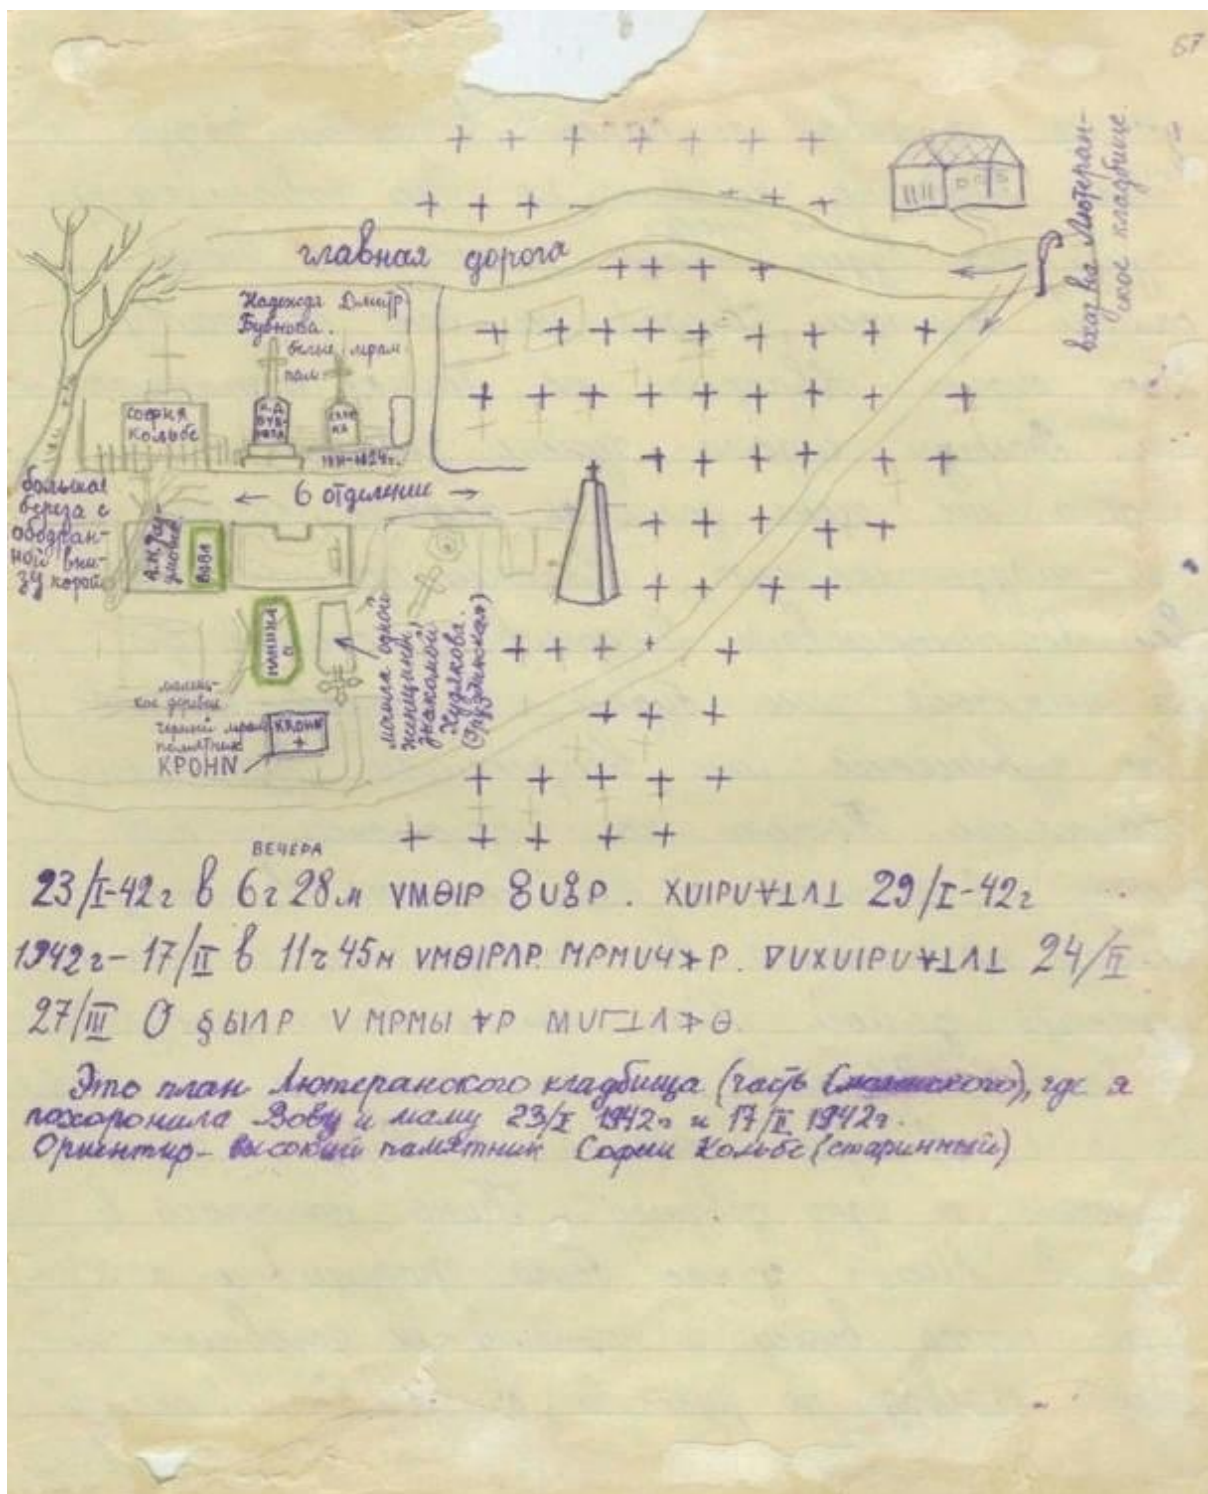 57
вход на Лютеран-
ское кладбище.
главная дорога
Надежда Дмитр
Бубнова.
белые мрам
пам
СОФИЯ
КОЛЬБЕ
Н.Д.
БУБ-
НОВА
← 6 отделение →
большая
береза с
ободран-
ной вни-
зу корой
ВОВА
могила одной
женщины,
знакомой
Худякова.
малень-
кое деревце
черный мрам
памятник
KROHN
KROHN
ВЕЧЕРА
23/I-42г в 6г 28м VMΘIP 8U8P. XUIPU∀⊥Λ⊥ 29/I-42г
1942г - 17/II в 11г 45м VMΘIPΛP МРМUЧ⚹Р. ∇UXUIPU∀⊥Λ⊥ 24/II
27/III О §ЫΛР V МРМЫ ∀Р МUГ⊥Λ⚹Θ.
Это план Лютеранского кладбища (часть Смоленского), где я
похоронила Вову и маму 23/I 1942г и 17/II 1942г.
Ориентир - высокий памятник Софии Кольбе (старинный)